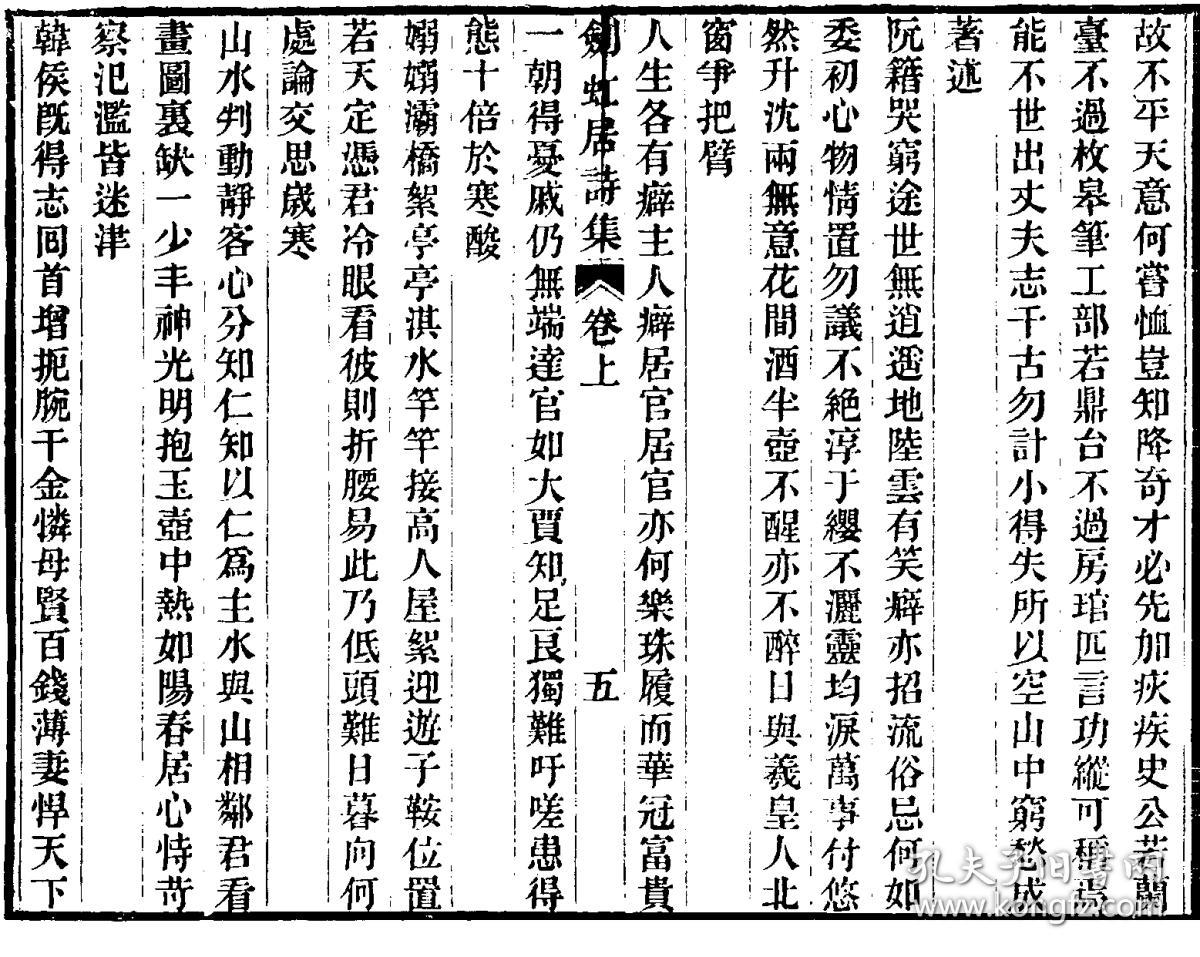 故不平天意何嘗恤豈知降奇才必先加疢疾史公若蘭
臺不過枚皋筆工部若鼎台不過房琯匹言功縱可稱焉
能不世出丈夫志千古勿計小得失所以空山中窮愁成
著述
阮籍哭窮途世無逍遥地陸雲有笑癖亦招流俗忌何如
委初心物情置勿議不絕淳于纓不灑靈均淚萬事付悠
然升沈兩無意花間酒半壺不醒亦不醉日與羲皇人北
窗爭把臂
人生各有癖主人癖居官居官亦何樂珠履而華冠富貴
劍虹居詩集 卷上 五
一朝得憂戚仍無端達官如大賈知足良獨難吁嗟患得
態十倍於寒酸
嫋嫋灞橋絮亭亭淇水竿竿接高人屋絮迎遊子鞍位置
若天定憑君冷眼看彼則折腰易此乃低頭難日暮向何
處論交思歲寒
山水判動靜客心分知仁知以仁爲主水與山相鄰君看
畫圖裏缺一少丰神光明抱玉壺中熱如陽春居心恃苛
察氾濫皆迷津
韓侯旣得志囘首增扼腕千金憐母賢百錢薄妻悍天下
孔夫子旧书网
www.kongfz.com